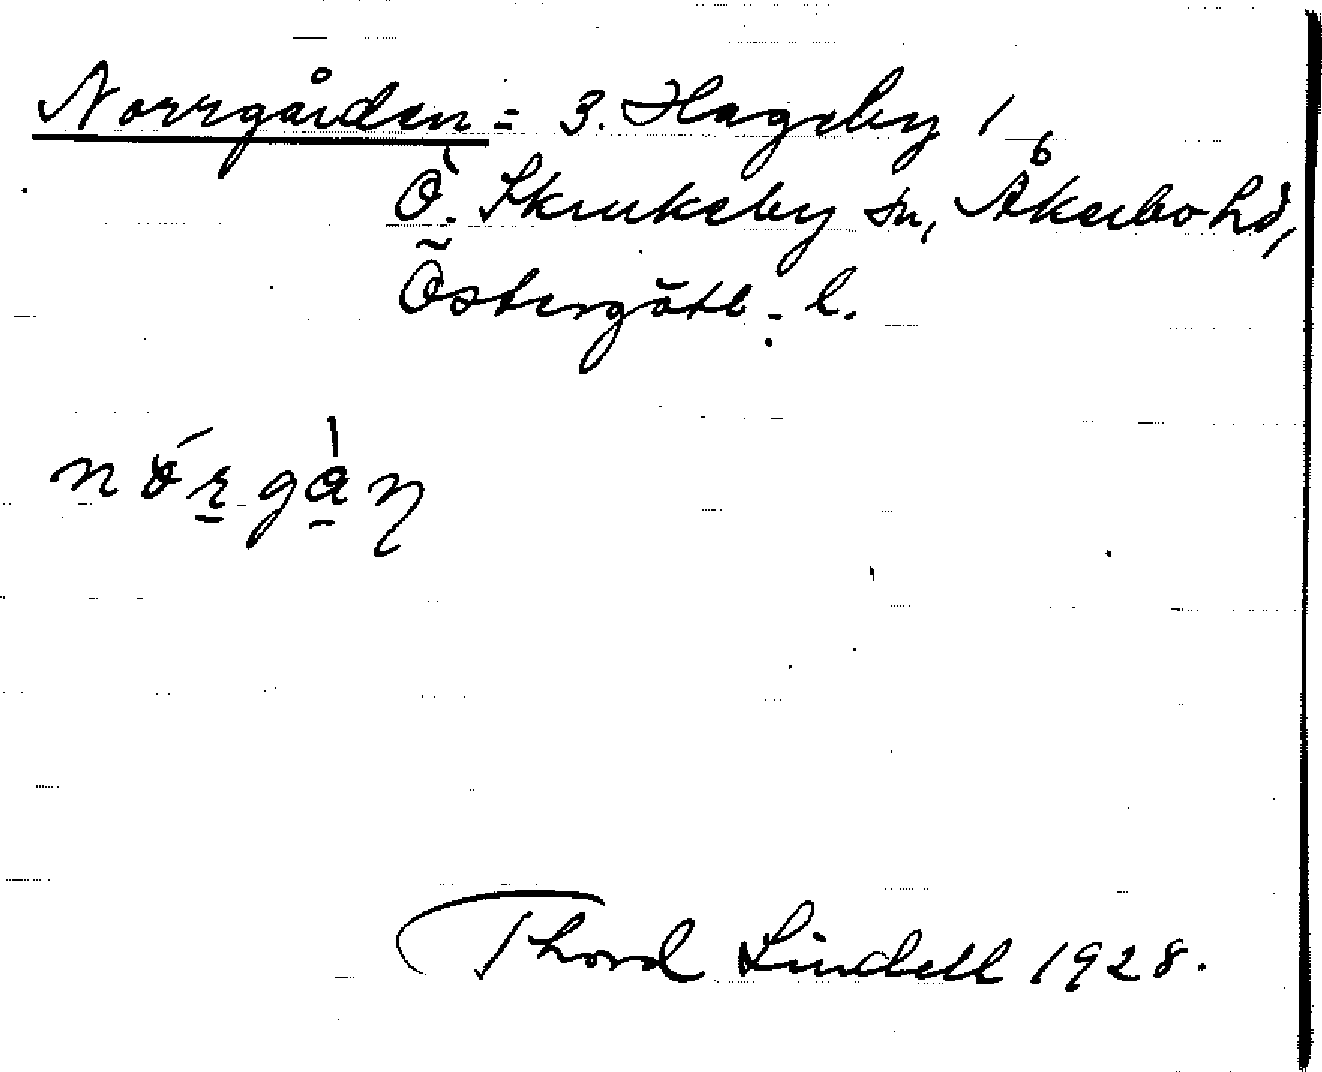 Norrgården = 3. Hageby 1,
Ö. Skrukeby sn, Åkerbo hd,
Östergötl. l.
nǿrgàn
Thord Lindell 1928.